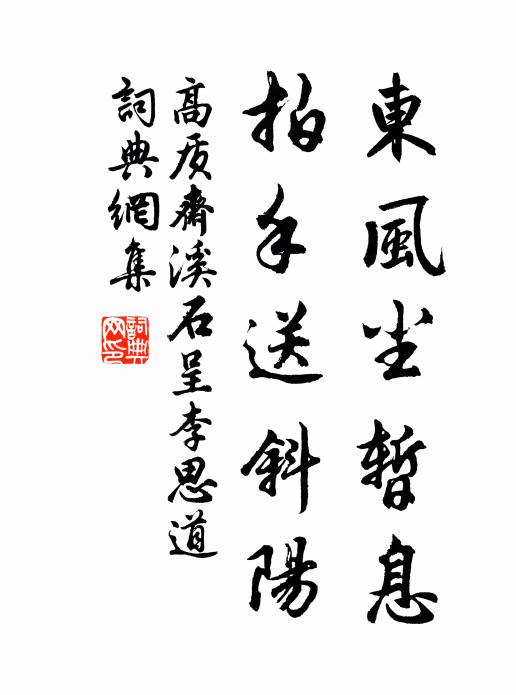 東風坐暫息
拍手送斜陽
高质齋溪石呈李思道
詞典網集
詞典
网印